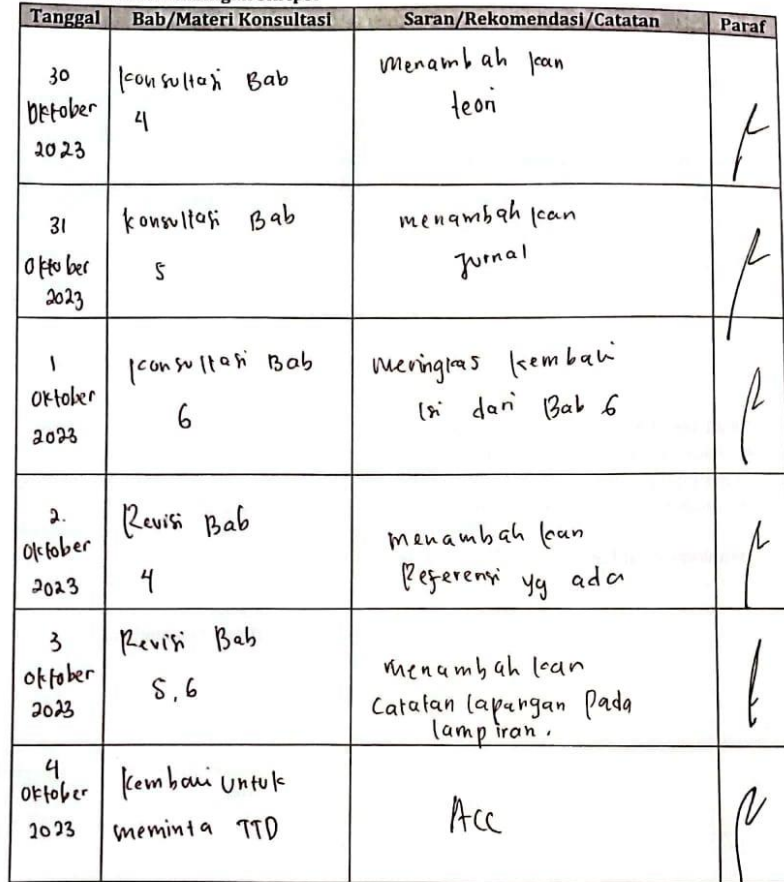 Tanggal Bab/Materi Konsultasi Saran/Rekomendasi/Catatan Paraf
30 Oktober 2023
Konsultasi Bab
4
Menambahkan
teori
31 Oktober 2023
Konsultasi Bab
5
menambahkan
Jurnal
1 Oktober 2023
Konsultasi Bab
6
meringkas kembali
Isi dari Bab 6
2. Oktober 2023
Revisi Bab
4
menambahkan
Referensi yg ada
3 Oktober 2023
Revisi Bab
5, 6
menambahkan
Catatan lapangan Pada
lampiran.
4 Oktober 2023
Kembali untuk
meminta TTD
Acc